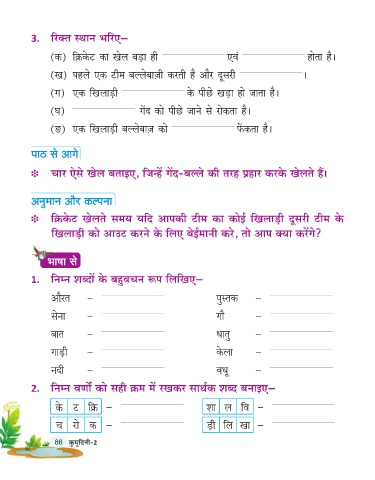 3. रिक्त स्थान भरिए–
(क) क्रिकेट का खेल बड़ा ही ____________ एवं ____________ होता है।
(ख) पहले एक टीम बल्लेबाज़ी करती है और दूसरी ____________ ।
(ग) एक खिलाड़ी ____________ के पीछे खड़ा हो जाता है।
(घ) ____________ गेंद को पीछे जाने से रोकता है।
(ङ) एक खिलाड़ी बल्लेबाज़ को ____________ फेंकता है।
पाठ से आगे
❉ चार ऐसे खेल बताइए, जिन्हें गेंद-बल्ले की तरह प्रहार करके खेलते हैं।
अनुमान और कल्पना
❉ क्रिकेट खेलते समय यदि आपकी टीम का कोई खिलाड़ी दूसरी टीम के
खिलाड़ी को आउट करने के लिए बेईमानी करे, तो आप क्या करेंगे?
भाषा से
1. निम्न शब्दों के बहुवचन रूप लिखिए–
औरत – ____________ पुस्तक – ____________
सेना – ____________ गौ – ____________
बात – ____________ धातु – ____________
गाड़ी – ____________ केला – ____________
नदी – ____________ वधू – ____________
2. निम्न वर्णों को सही क्रम में रखकर सार्थक शब्द बनाइए–
के ट क्रि – ____________ शा ल वि – ____________
च रो क – ____________ ड़ी लि खा – ____________
86 कुमुदिनी-2